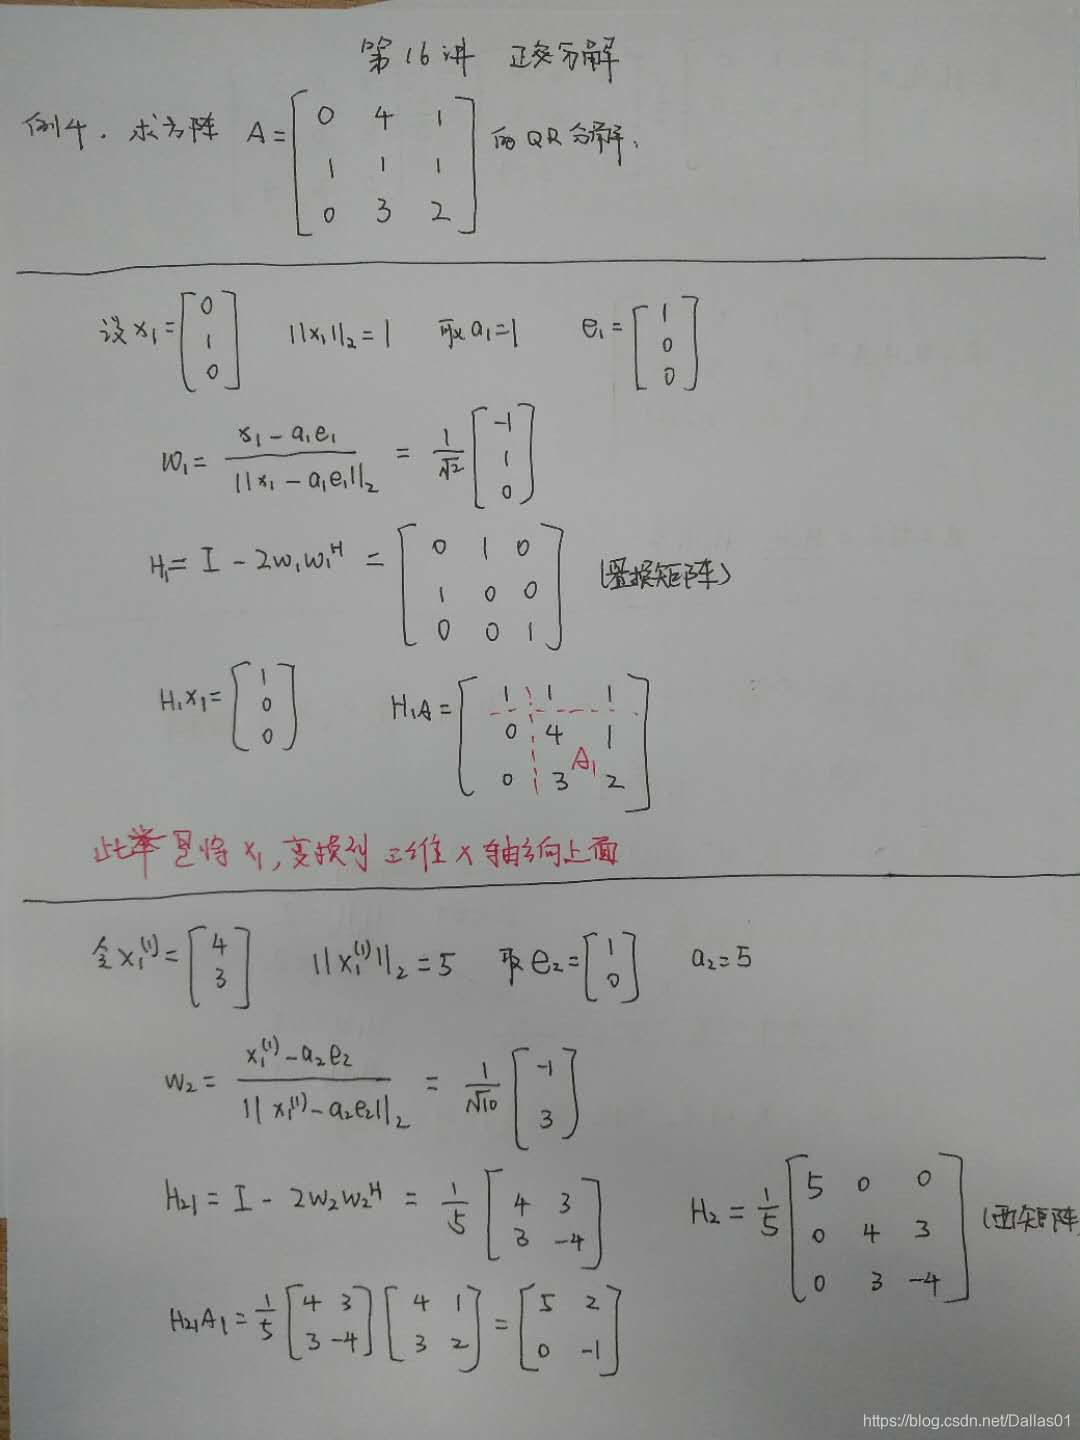 第16讲 正交分解
例4. 求方阵 A = [0 4 1; 1 1 1; 0 3 2] 的QR分解.
设 x₁ = [0; 1; 0] ||x₁||₂ = 1 取 a₁=1 e₁ = [1; 0; 0]
w₁ = (x₁ - a₁e₁) / ||x₁ - a₁e₁||₂ = 1/√2 [-1; 1; 0]
H₁ = I - 2w₁w₁ᴴ = [0 1 0; 1 0 0; 0 0 1] (置换矩阵)
H₁x₁ = [1; 0; 0] H₁A = [1 1 1; 0 4 1; 0 3 2] A₁
此举是将 x₁, 变换到 三维 x 轴方向上面
令 x₁⁽¹⁾ = [4; 3] ||x₁⁽¹⁾||₂ = 5 取 e₂ = [1; 0] a₂ = 5
w₂ = (x₁⁽¹⁾ - a₂e₂) / ||x₁⁽¹⁾ - a₂e₂||₂ = 1/√10 [-1; 3]
H₂₁ = I - 2w₂w₂ᴴ = 1/5 [4 3; 3 -4] H₂ = 1/5 [5 0 0; 0 4 3; 0 3 -4] (酉矩阵
H₂₁A₁ = 1/5 [4 3; 3 -4] [4 1; 3 2] = [5 2; 0 -1]
https://blog.csdn.net/Dallas01